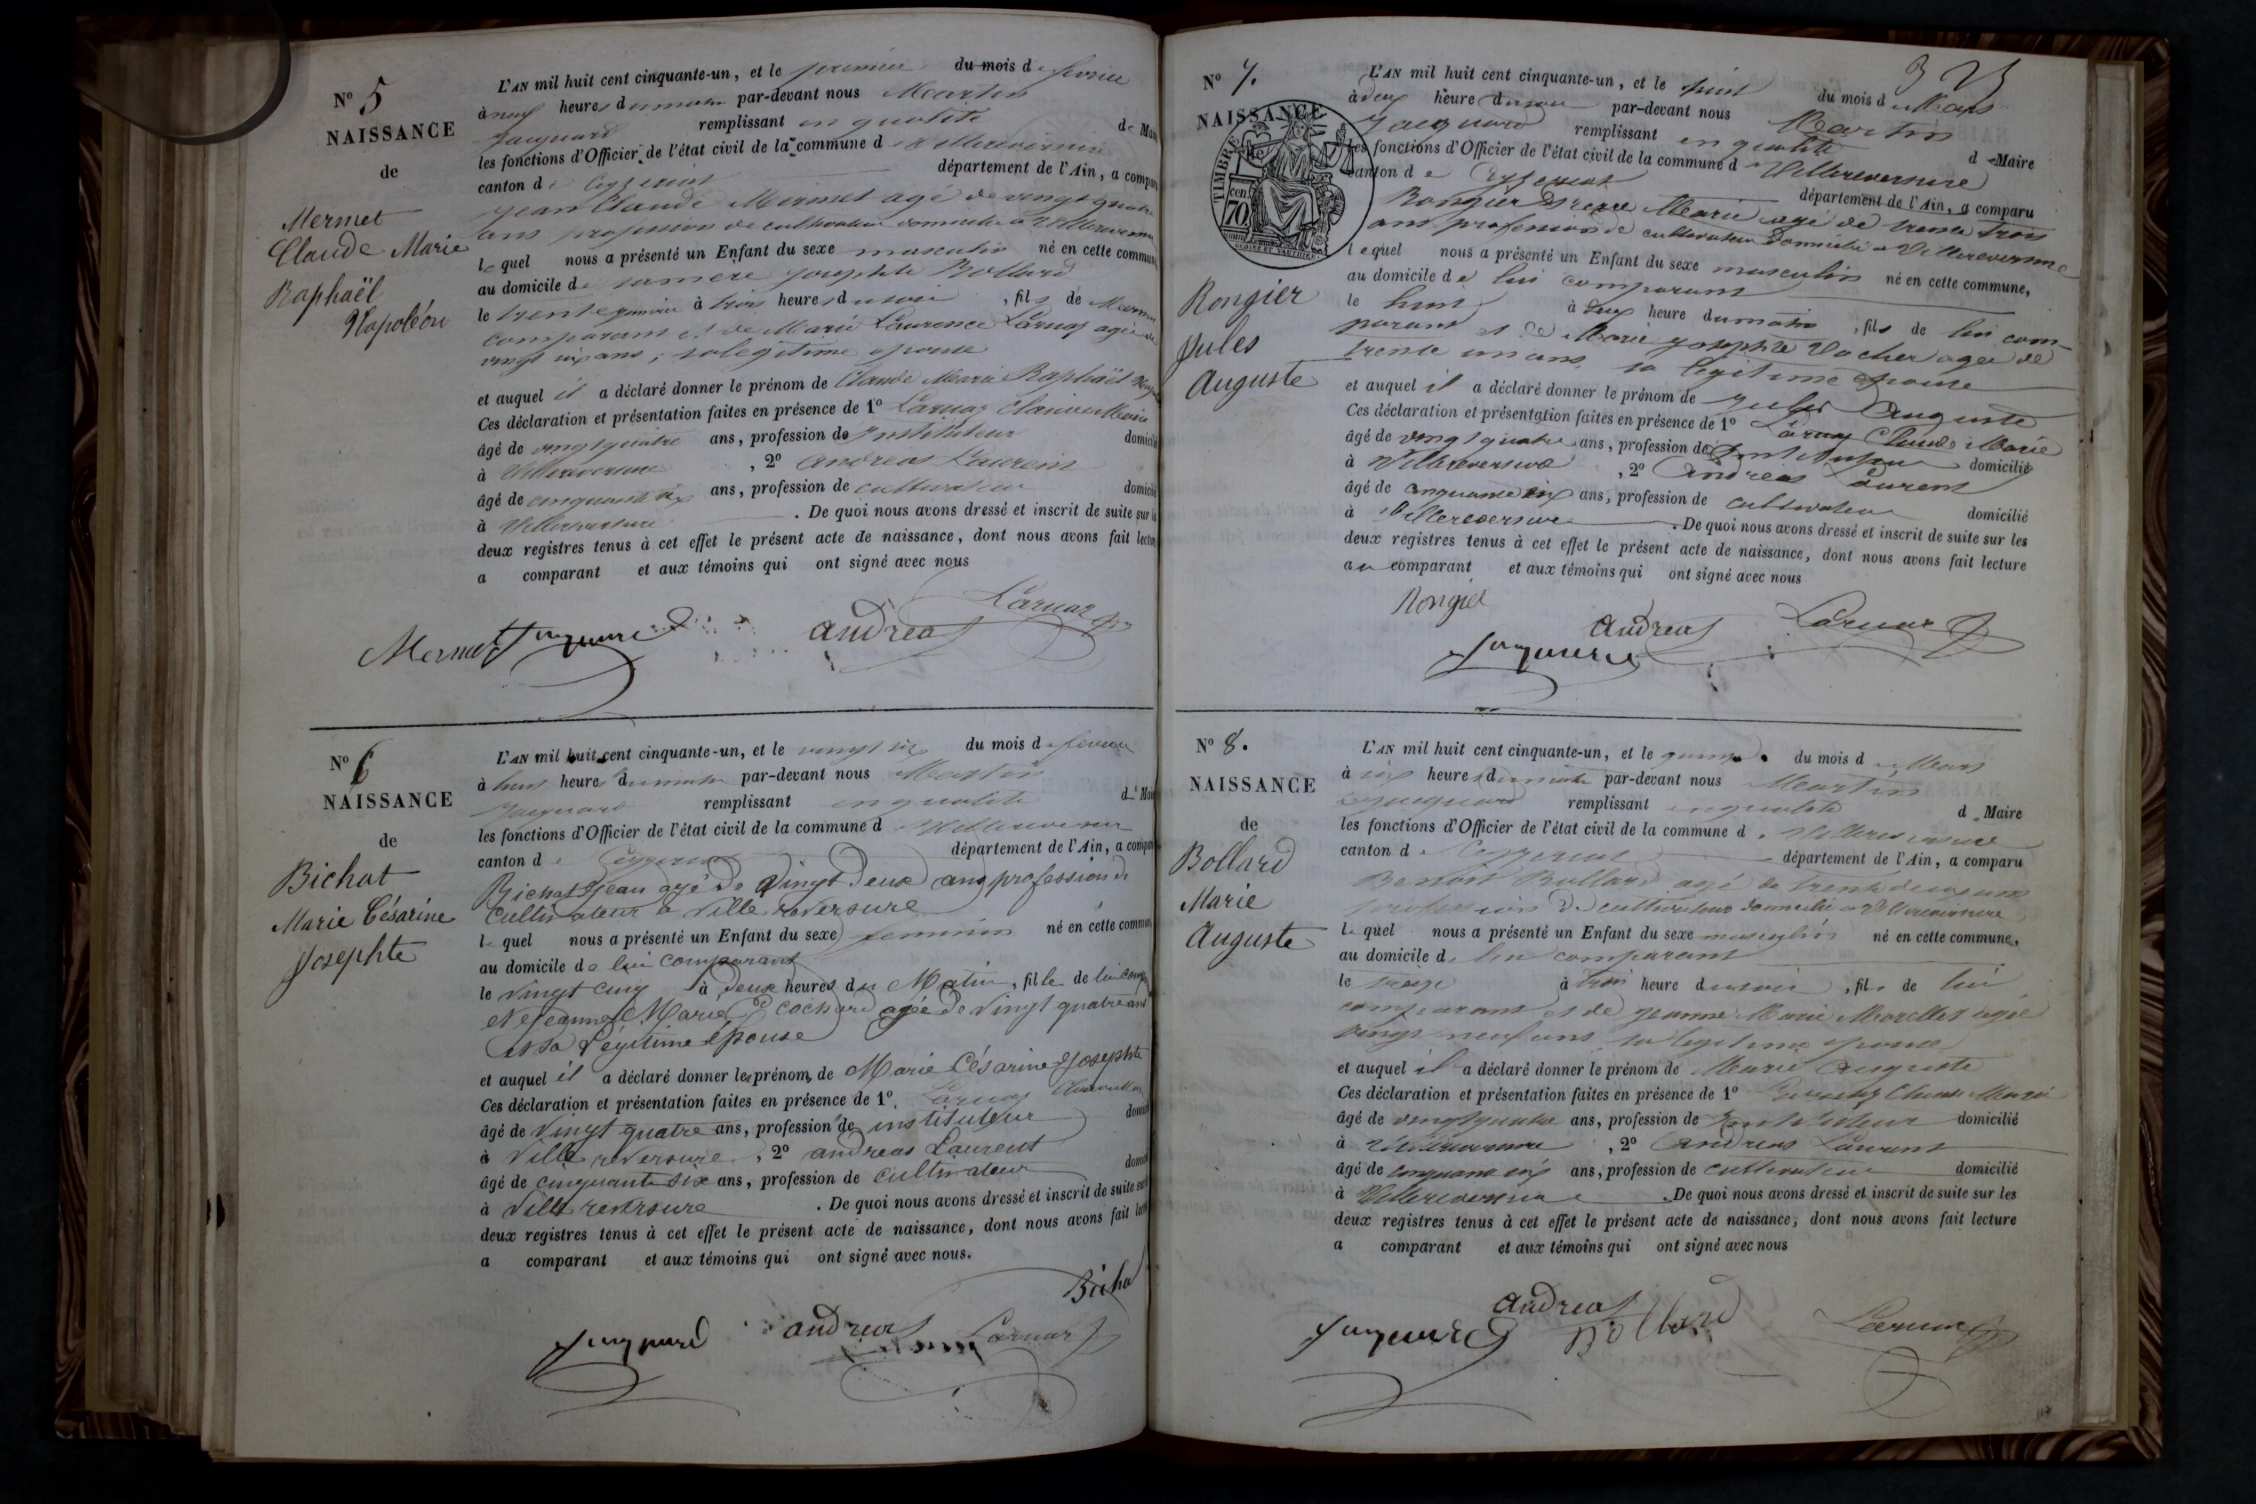 N° 5
NAISSANCE
de
Mermet
Claude Marie
Raphaël
Napoléon
L'AN mil huit cent cinquante-un, et le premier du mois de février
à neuf heures du matin par-devant nous Martin
Jacquard remplissant en qualité de Mai
les fonctions d'Officier de l'état civil de la commune de Villereversure
canton de Ceyzeriat département de l'Ain, a compa
Jean Claude Mermet agé de vingt quatre
ans profession de cultivateur domicilié à Villereversure
le quel nous a présenté un Enfant du sexe masculin né en cette commun
au domicile de sa mere Josephte Bollard
le trente à trois heures du soir, fils de
comparant et de Marie Laurence Laruaz agée de
vingt six ans, sa légitime épouse
et auquel il a déclaré donner le prénom de Claude Marie Raphaël
Ces déclaration et présentation faites en présence de 1° Laruaz Claude Marie
âgé de vingt quatre ans, profession de Instituteur domicilié
à Villereversure, 2° Andreas Laurent
âgé de cinquante six ans, profession de cultivateur domicilié
à Villereversure. De quoi nous avons dressé et inscrit de suite sur le
deux registres tenus à cet effet le présent acte de naissance, dont nous avons fait lectur
a comparant et aux témoins qui ont signé avec nous
Laruaz
Mermet Jacquard Andreas
N° 6
NAISSANCE
de
Bichat
Marie Césarine
Josephte
L'AN mil huit cent cinquante-un, et le vingt six du mois de fevrier
à huit heures du matin par-devant nous Martin
Jacquard remplissant en qualité de Mai
les fonctions d'Officier de l'état civil de la commune d Villereversure
canton de Ceyzeriat département de l'Ain, a compar
Bichat Jean agé de Vingt Deux ans profession de
Cultivateur à Ville reversure
le quel nous a présenté un Enfant du sexe feminin né en cette commun
au domicile de lui comparant
le Vingt cinq à Deux heures du Matin, fille de lui comp
et de Jeanne Marie Cochard agée de Vingt quatre ans
et sa Légitime épouse
et auquel il a déclaré donner les prénom de Marie Césarine Josephte
Ces déclaration et présentation faites en présence de 1° Laruaz Claude Marie
âgé de Vingt quatre ans, profession de instituteur domicil
à Ville reversure, 2° andreas Laurent
âgé de cinquante six ans, profession de cultivateur domicil
à Ville reversure. De quoi nous avons dressé et inscrit de suite sur
deux registres tenus à cet effet le présent acte de naissance, dont nous avons fait lect
a comparant et aux témoins qui ont signé avec nous.
Bicha
Jacquard andreas Laruaz
N° 7.
NAISSANCE
TIMBRE
cen 70
Rongier
Jules
Auguste
L'AN mil huit cent cinquante-un, et le huit du mois de Mars
à deux heure du soir par-devant nous Martin
Jacquard remplissant en qualité d Maire
les fonctions d'Officier de l'état civil de la commune d Villereversure
canton de Ceyzeriat département de l'Ain, a comparu
Rongier Marie agé de trente trois
ans profession de cultivateur domicilié à Villereversure
lequel nous a présenté un Enfant du sexe masculin né en cette commune,
au domicile de lui comparant
le huit à deux heure du matin, fils de lui com-
parant et de Marie Josephte Vocher agée de
trente un ans, sa légitime épouse
et auquel il a déclaré donner le prénom de Jules Auguste
Ces déclaration et présentation faites en présence de 1° Laruaz Claude Marie
âgé de vingt quatre ans, profession de Instituteur domicilié
à Villereversure, 2° Andreas Laurent
âgé de cinquante six ans, profession de cultivateur domicilié
à Villereversure. De quoi nous avons dressé et inscrit de suite sur les
deux registres tenus à cet effet le présent acte de naissance, dont nous avons fait lecture
au comparant et aux témoins qui ont signé avec nous
Rongier
Andreas Laruaz
Jacquard
N° 8.
NAISSANCE
de
Bollard
Marie
Auguste
L'AN mil huit cent cinquante-un, et le quinze du mois de Mars
à six heure du matin par-devant nous Martin
Jacquard remplissant en qualité d Maire
les fonctions d'Officier de l'état civil de la commune d Villereversure
canton de Ceyzeriat département de l'Ain, a comparu
Benoit Bollard agé de trente deux ans
profession de cultivateur domicilié à Villereversure
le quel nous a présenté un Enfant du sexe masculin né en cette commune,
au domicile de lui comparant
le treize à trois heure du soir, fils de lui
comparant et de Jeanne Marie Morellet agée
vingt neuf ans, sa légitime épouse
et auquel il a déclaré donner le prénom de Marie Auguste
Ces déclaration et présentation faites en présence de 1° Laruaz Claude Marie
âgé de vingt quatre ans, profession de Instituteur domicilié
à Villereversure, 2° Andreas Laurent
âgé de cinquante six ans, profession de cultivateur domicilié
à Villereversure. De quoi nous avons dressé et inscrit de suite sur les
deux registres tenus à cet effet le présent acte de naissance, dont nous avons fait lecture
a comparant et aux témoins qui ont signé avec nous
Andreas
Jacquard Bollard Laruaz